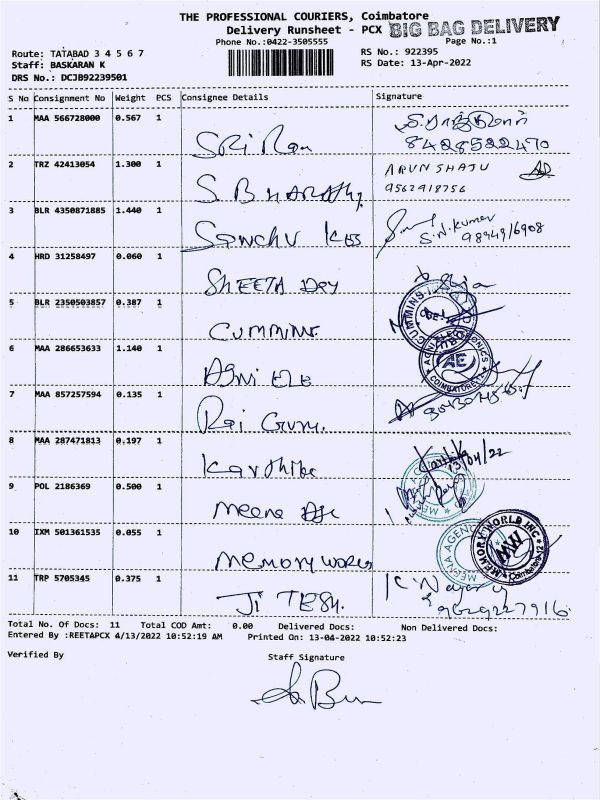 THE PROFESSIONAL COURIERS, Coimbatore
Delivery Runsheet - PCX BIG BAG DELIVERY
Phone No.:0422-3505555 Page No.:1
Route: TATABAD 3 4 5 6 7 RS No.: 922395
Staff: BASKARAN K RS Date: 13-Apr-2022
DRS No.: DCJB92239501
S No Consignment No Weight PCS Consignee Details Signature
1 MAA 566728000 0.567 1
Sri Ram 8428522470
2 TRZ 42413054 1.300 1 ARUN SHAJU
S. BHARATHy 9562918756
3 BLR 4350871885 1.440 1
S.N.Kumar
9894916908
4 HRD 31258497 0.060 1
SHEETA Dey
5 BLR 2350503857 0.387 1
CUMMINS
6 MAA 286653633 1.140 1
AGNI ELE
AE
COIMBATORE-12
7 MAA 857257594 0.135 1
Raj Guru.
8 MAA 287471813 0.197 1
Karthika Karthika
13/04/22
9 POL 2186369 0.500 1
Meena Age
10 IXM 501361535 0.055 1
MEMORY WORLD MEENA AGENC
MEMORY WORLD INC
MW
Coimbatore-12
11 TRP 5705345 0.375 1
JiTESH. 9629227916
Total No. Of Docs: 11 Total COD Amt: 0.00 Delivered Docs: Non Delivered Docs:
Entered By :REETAPCX 4/13/2022 10:52:19 AM Printed On: 13-04-2022 10:52:23
Verified By Staff Signature